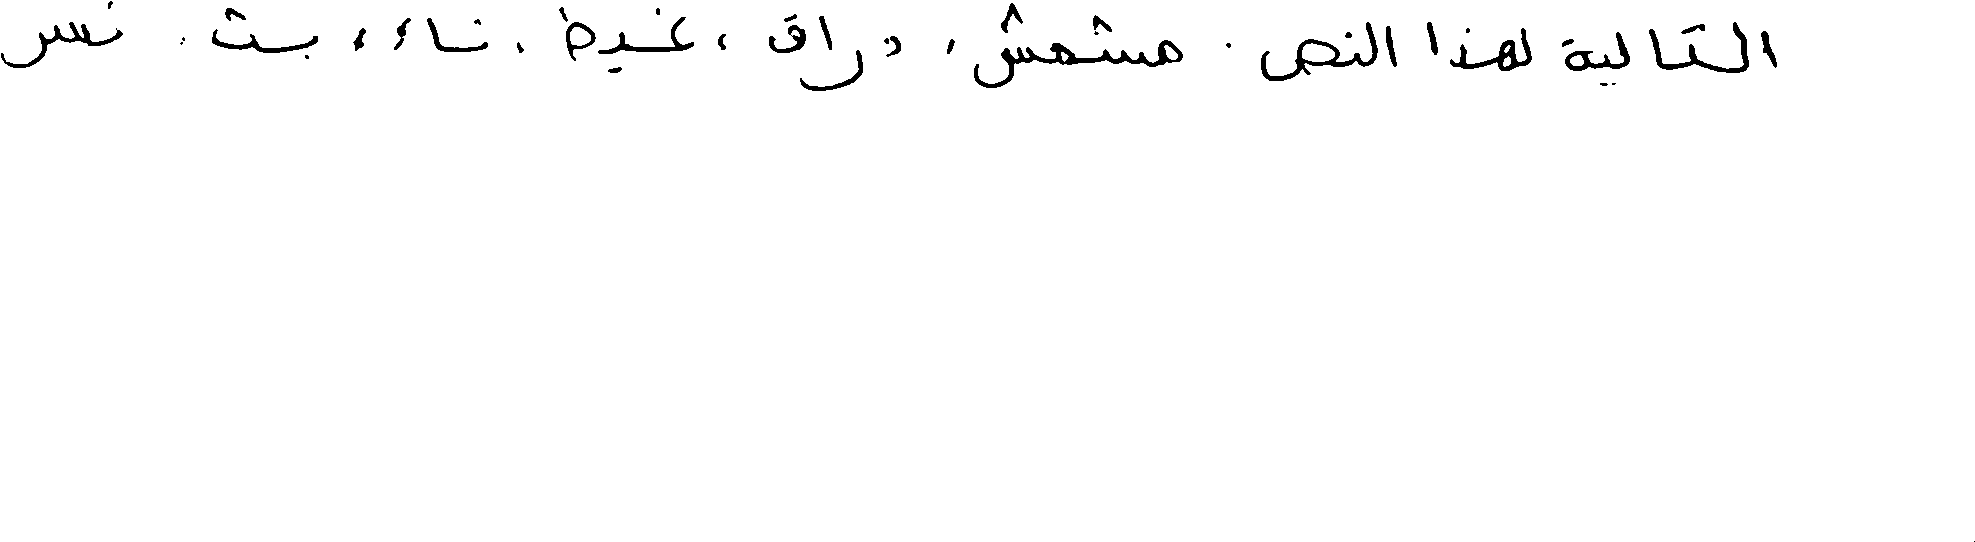 التالية لهذا النص. مشمش، دراق، غيظ، ناء، بث، نسر